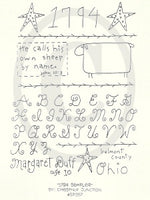 1794
He calls his
own sheep
by name.
John 10:3
A B C D E F
G H I J K L M
N O P Q R S T
U V W X Y Z
Margaret Duff
age 10
Belmont
county
Ohio
"1794 SAMPLER"
BY: CHESTNUT JUNCTION